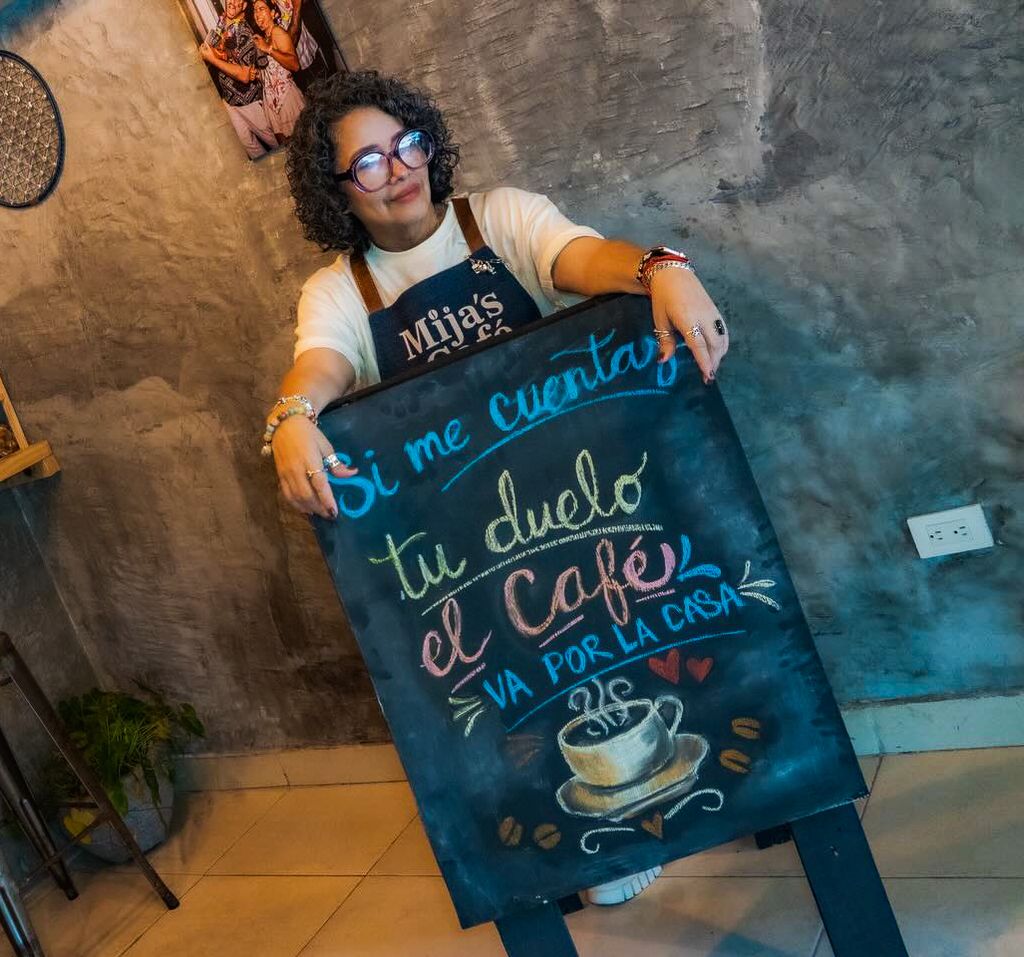 Mija's
Café
Si me cuentas
tu duelo
el Café
VA POR LA CASA